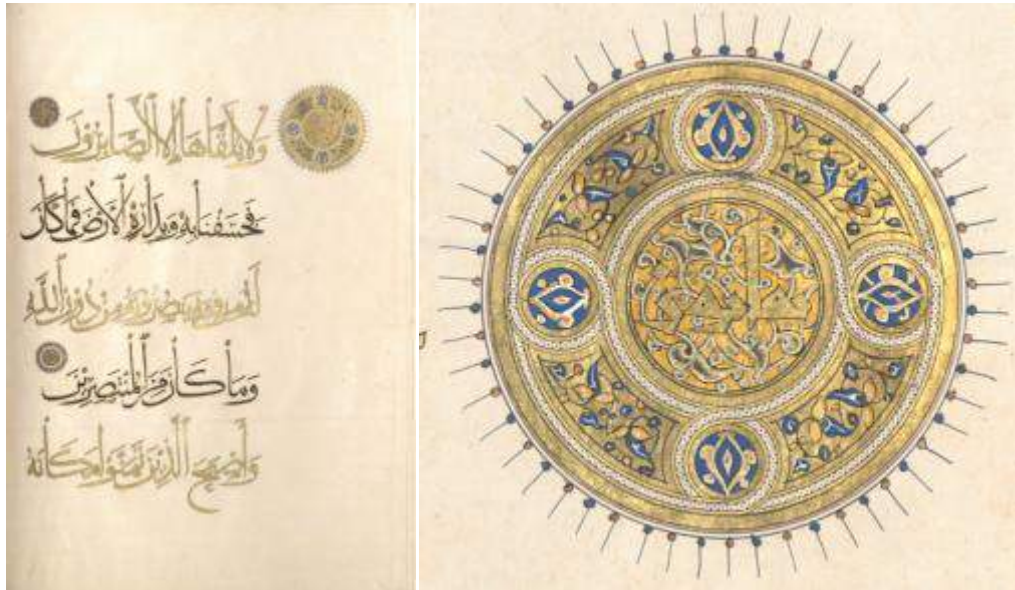 ولا يلقاها إلا الصابرون
فخسفنا به وبداره الأرض فما كان
له من فئة ينصرونه من دون الله
وما كان من المنتصرين
وأصبح الذين تمنوا مكانه